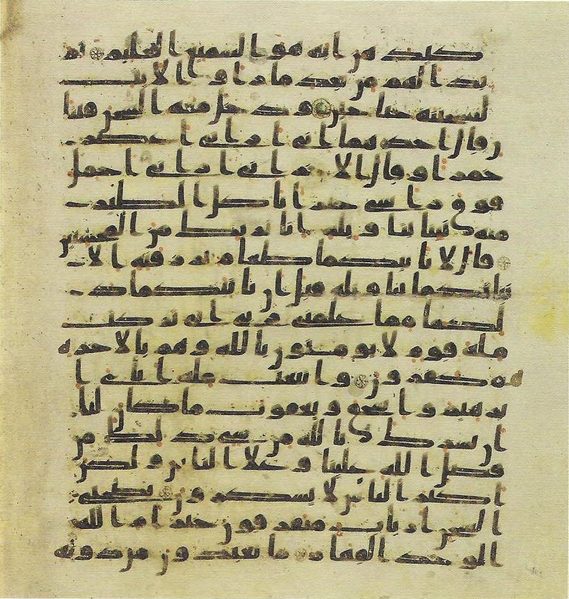 كيدهن انه هو السميع العليم ثم
بدا لهم من بعد ما راوا الايت
ليسجننه حتى حين ودخل معه السجن فتيا
ن قال احدهما اني اريني اعصر
خمرا وقال الاخر اني اريني احمل
فوق راسي خبزا تاكل الطير
منه نبينا بتاويله انا نريك من المحسنين
قال لا ياتيكما طعام ترزقنه الا
نباتكما بتاويله قبل ان ياتيكما ذ
لكما مما علمني ربي اني تركت
مله قوم لا يومنون بالله وهم بالاخره
هم كفرون واتبعت مله اباي ا
برهيم واسحق ويعقوب ما كان لنا
ان نشرك بالله من شي ذلك من
فضل الله علينا وعلى الناس ولكن
اكثر الناس لا يشكرون يصحبي
السجن ارباب متفرقون خير ام الله
الوحد القهار ما تعبدون من دونه